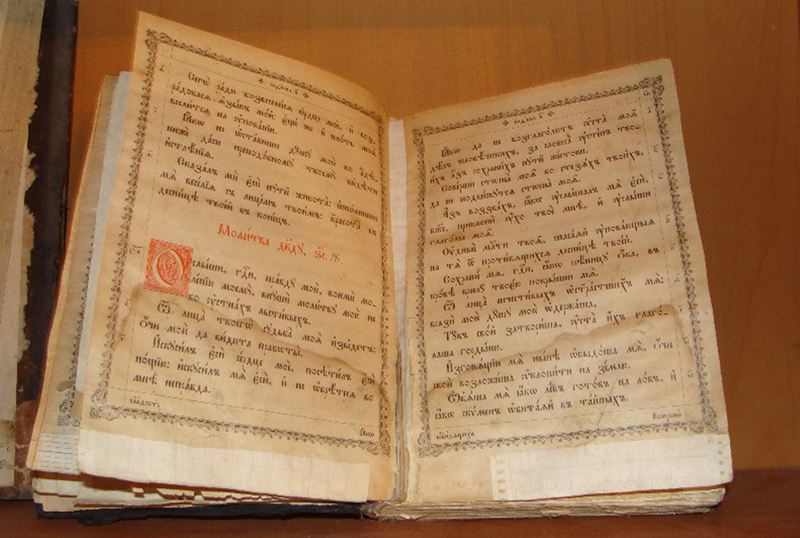 Сегѡ̀ ра́ди возвесели́сѧ се́рдце моѐ, и҆ воз-
ра́довасѧ ѧ҆зы́къ мо́й: є҆ще́ же и҆ пло́ть моѧ̀
всели́тсѧ на ᲂу҆пова́нїи.
Ꙗ҆́кѡ не ѡ҆ста́виши дꙋ́шꙋ мою̀ во а҆́дѣ,
нижѐ да́си преподо́бномꙋ твоемꙋ̀ ви́дѣти
и҆стлѣ́нїѧ.
Сказа́лъ ми є҆сѝ пꙋти̑ живота̀: и҆спо́лниши
мѧ̀ весе́лїѧ съ лице́мъ твои́мъ: красота̀ въ
десни́цѣ твое́й въ коне́цъ.
Моли́тва дв҃дꙋ, ѕ҃і.
Оу҆слы́ши, гдⷭ҇и, пра́вдꙋ мою̀, вонмѝ мо-
ле́нїю моемꙋ̀, внꙋшѝ моли́твꙋ мою̀ не
во ᲂу҆стна́хъ льсти́выхъ.
Ѿ лица̀ твоегѡ̀ сꙋдьба̀ моѧ̀ и҆зы́детъ:
ѻ҆́чи моѝ да ви́дита правѡты̑.
И҆скꙋси́лъ є҆сѝ се́рдце моѐ, посѣти́лъ є҆сѝ
но́щїю: и҆скꙋси́лъ мѧ̀ є҆сѝ, и҆ не ѡ҆брѣ́тесѧ во
мнѣ̀ непра́вда.
Ꙗ҆́кѡ
Ꙗ҆́кѡ да не возглаго́лютъ ᲂу҆ста̀ моѧ̑
дѣ́лъ человѣ́ческихъ, за словеса̀ ᲂу҆сте́нъ тво-
и́хъ а҆́зъ сохрани́хъ пꙋти̑ жє́стоки.
Совершѝ стѡпы̀ моѧ̑ во стезѧ́хъ твои́хъ,
да не подви́жꙋтсѧ стѡпы̀ моѧ̑.
А҆́зъ воззва́хъ, ꙗ҆́кѡ ᲂу҆слы́шалъ мѧ̀ є҆сѝ,
бж҃е: приклонѝ ᲂу҆́хо твоѐ мнѣ̀, и҆ ᲂу҆слы́ши
глаго́лы моѧ̑.
Оу҆дивѝ млⷭ҇ти твоѧ̑, спаса́ѧй ᲂу҆пова́ющыѧ
на тѧ̀ ѿ проти́вѧщихсѧ десни́цѣ твое́й.
Сохрани́ мѧ, гдⷭ҇и, ꙗ҆́кѡ зѣ́ницꙋ ѻ҆́ка, въ
кро́вѣ крилꙋ̀ твоє́ю покры́еши мѧ̀.
Ѿ лица̀ нечести́выхъ ѡ҆стра́стшихъ мѧ̀:
вразѝ моѝ дꙋ́шꙋ мою̀ ѡ҆держа́ша.
Тꙋ́къ сво́й затвори́ша, ᲂу҆ста̀ и҆́хъ глаго́-
лаша горды́ню.
И҆згонѧ́щїи мѧ̀ нн҃ѣ ѡ҆быдо́ша мѧ̀, ѻ҆́чи
своѝ возложи́ша ᲂу҆клони́ти на зе́млю.
Ѡ҆б̾ѧ́ша мѧ̀ ꙗ҆́кѡ ле́въ гото́въ на ло́въ, и҆
ꙗ҆́кѡ скѵ́менъ ѡ҆бита́ѧй въ та́йныхъ.
Воскрⷭ҇нѝ